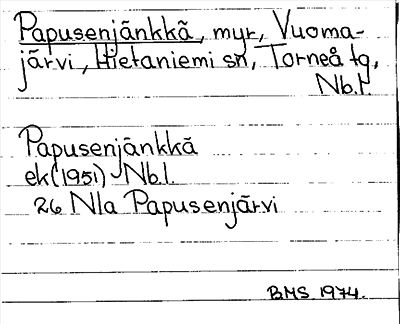 Papusenjänkkä, myr, Vuoma-
järvi, Hietaniemi sn, Torneå tg,
Nb.l.
Papusenjänkkä
ek (1951) Nb.l.
26 Nla Papusenjärvi
BMS 1974.